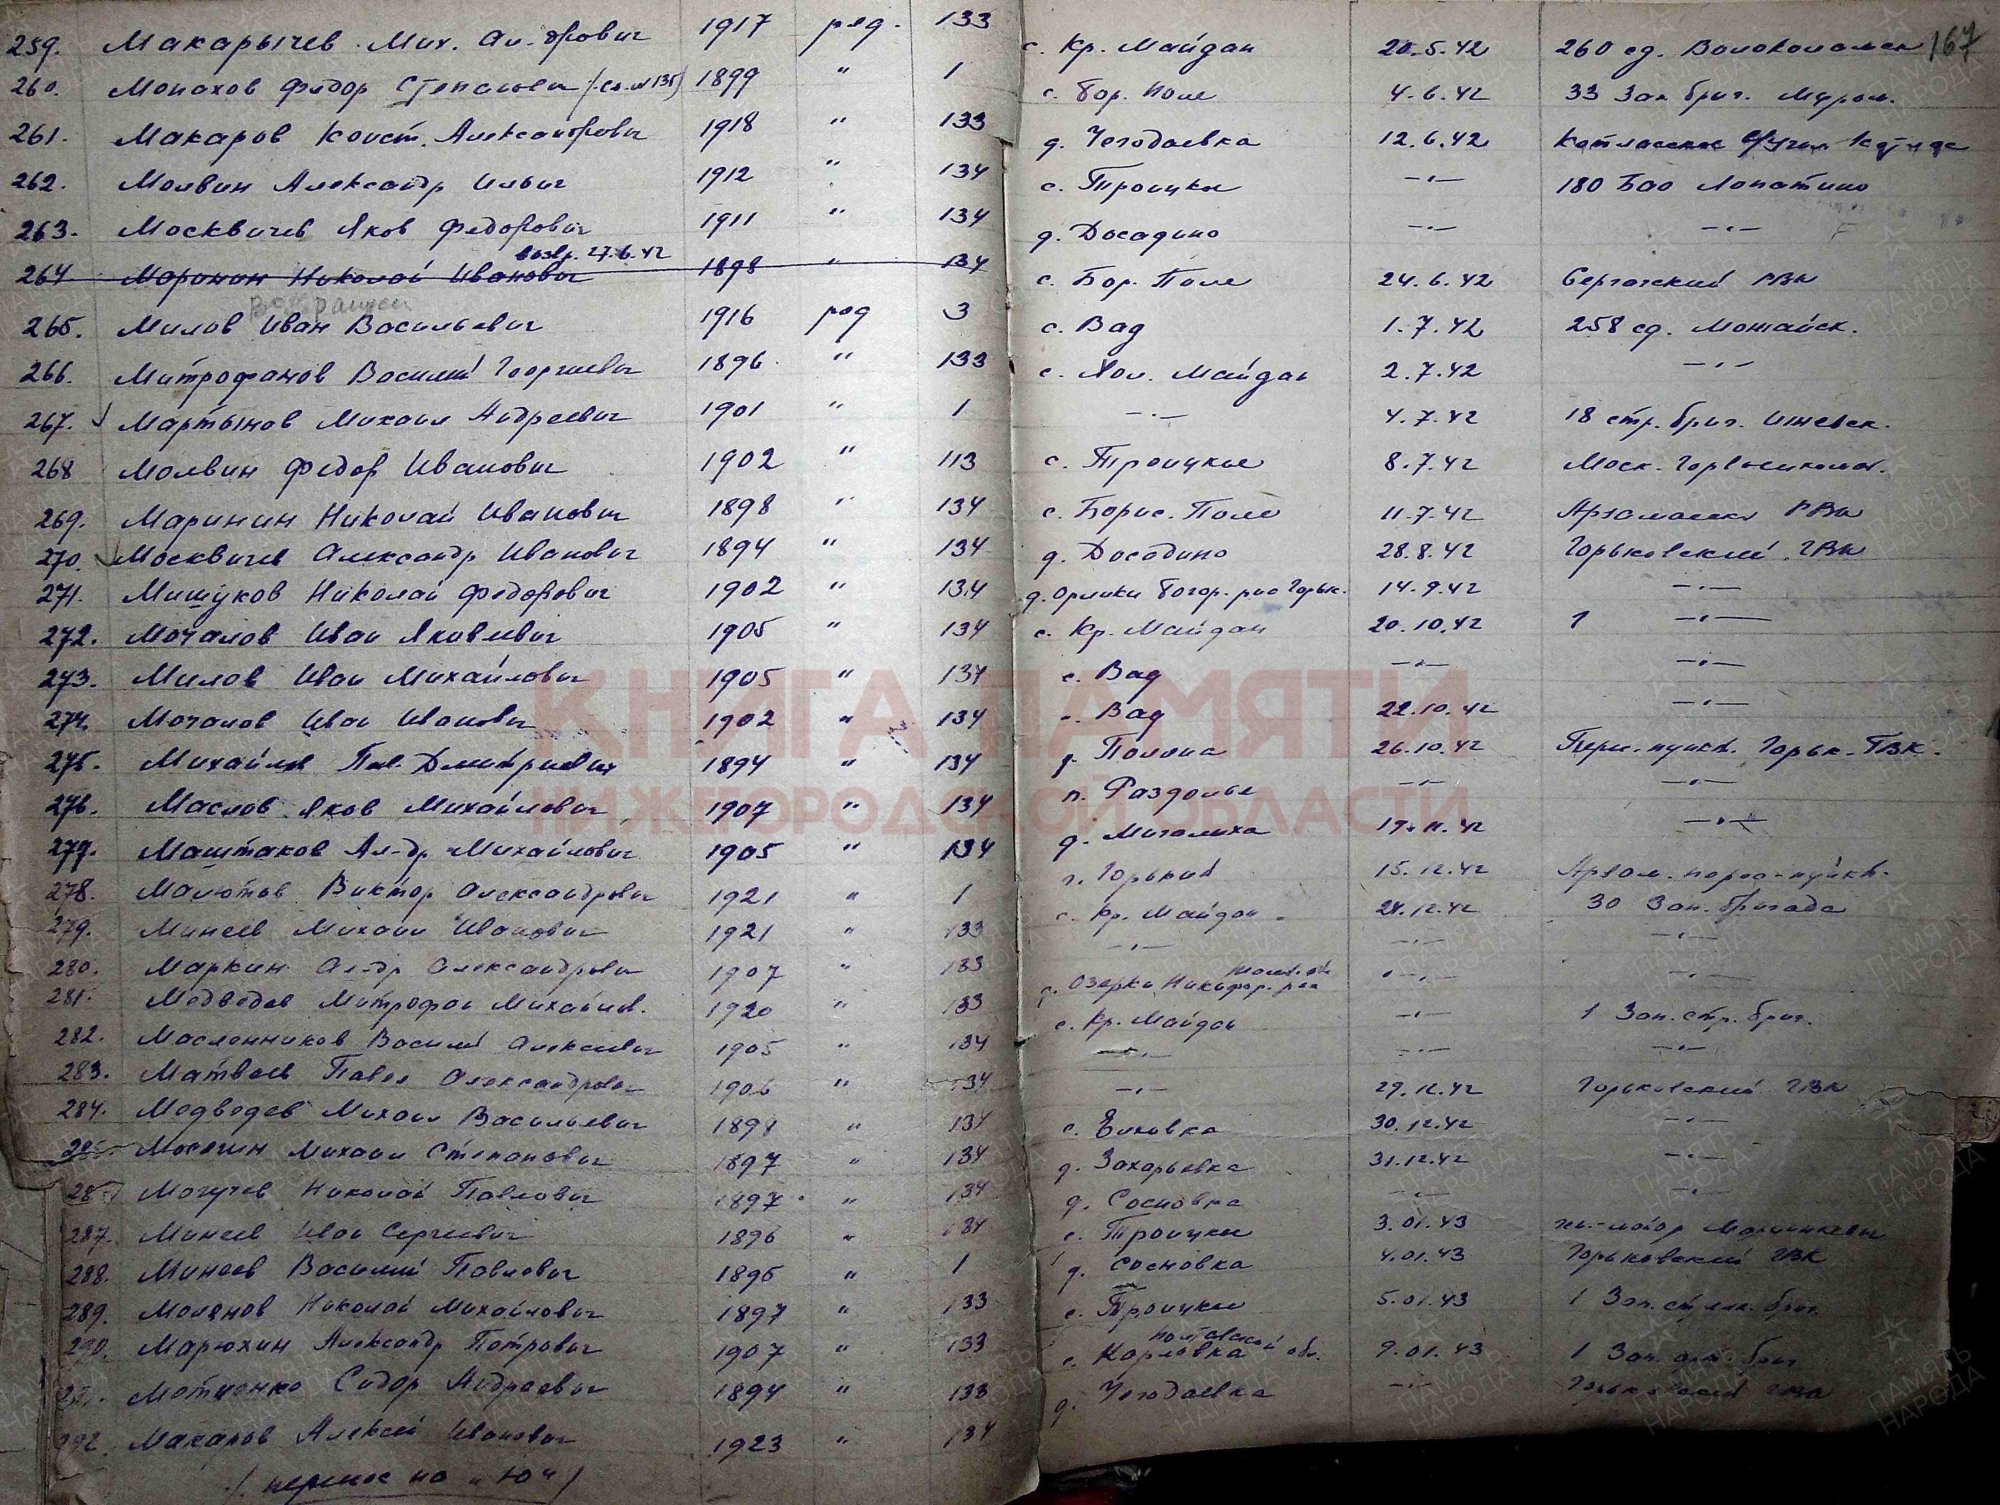 259. Макарычев Мих. Ал-дрович 1917 ряд. 133 с. Кр. Майдан 20.5.42 260 сд. Волоколамск 167
260. Монахов Федор Степанович 1899 " 1 с. Бор. Поле 4.6.42 33 Зап. бриг. Муром.
261. Макаров Конст. Александрович 1918 " 133 д. Чегодаевка 12.6.42 Котласское
262. Молвин Александр Ильич 1912 " 134 с. Троицкое —"— 180 Бао Лопатино
263. Москвичев Яков Федорович 1911 " 134 д. Досадино —"— —"—
возвр. 27.6.42
264 Маринин Николай Иванович 1898 " 134 с. Бор. Поле 24.6.42 Сергачский РВК
Возвращен
265. Милов Иван Васильевич 1916 ряд 3 с. Вад 1.7.42 258 сд. Можайск.
266. Митрофанов Василий Георгиевич 1896 " 133 с. Хол. Майдан 2.7.42 —"—
267. Мартынов Михаил Андреевич 1901 " 1 —"— 4.7.42 18 стр. бриг. Ижевск.
268 Молвин Федор Иванович 1902 " 113 с. Троицкое 8.7.42 Моск. Горвоенкомат.
269. Маринин Николай Иванович 1898 " 134 с. Борис. Поле 11.7.42 Арзамасск РВК
270. Москвичев Александр Иванович 1894 " 134 д. Досадино 28.8.42 Горьковский ГВК
271. Мишуков Николай Федорович 1902 " 134 д. Орлики Богор. р-на Горьк. 14.9.42 —"—
272. Мочалов Иван Яковлевич 1905 " 134 с. Кр. Майдан 20.10.42 —"—
273. Милов Иван Михайлович 1905 " 134 с. Вад —"— —"—
274. Мочалов Иван Иванович 1902 " 134 с. Вад 22.10.42 —"—
275. Михайлов Пав. Дмитриевич 1894 " 134 д. Поляна 26.10.42 Перес. пункт. Горьк. ГВК.
276. Маслов Яков Михайлович 1907 " 134 п. Раздолье —"— —"—
277. Маштаков Ал-др Михайлович 1905 " 134 д. Мигалиха 19.11.42 —"—
278. Малютов Виктор Александрович 1921 " 1 г. Горький 15.12.42 Арзам. перес-пункт.
279. Минеев Михаил Иванович 1921 " 133 с. Кр. Майдан 24.12.42 30 Зап. бригада
280. Маркин Ал-др Александрович 1907 " 133 —"— —"— —"—
281. Медведев Митрофан Михайлов. 1920 " 133 с. Озерки Никифор. р-на —"— —"—
282. Масленников Василий Алексеевич 1905 " 134 с. Кр. Майдан —"— 1 Зап. стр. бриг.
283. Матвеев Павел Александрович 1906 " 134 —"— —"— —"—
284. Медведев Михаил Васильевич 1898 " 134 —"— 29.12.42 Горьковский ГВК
285. Мосягин Михаил Степанович 1897 " 134 с. Быховка 30.12.42 —"—
28 Могучев Николай Павлович 1897 " 134 д. Захарьевка 31.12.42 —"—
287. Минеев Иван Сергеевич 1896 " 134 д. Сосновка —"— —"—
288. Минеев Василий Павлович 1895 " 1 с. Троицкое 3.01.43
289. Молянов Николай Михайлович 1897 " 133 д. Сосновка 4.01.43 Горьковский ГВК
290. Марюхин Александр Петрович 1907 " 133 с. Троицкое 5.01.43 1 Зап. стрелк. бриг.
291. Матиенко Сидор Андреевич 1894 " 133 с. Карловка Полтавской обл. 9.01.43 1 Зап. бриг
292. Макаров Алексей Иванович 1923 " 134 д. Чегодаевка —"— Горьковский ГВК
/ перенос на "Ю" /
КНИГА ПАМЯТИ
НИЖЕГОРОДСКОЙ ОБЛАСТИ
ПАМЯТЬ НАРОДА